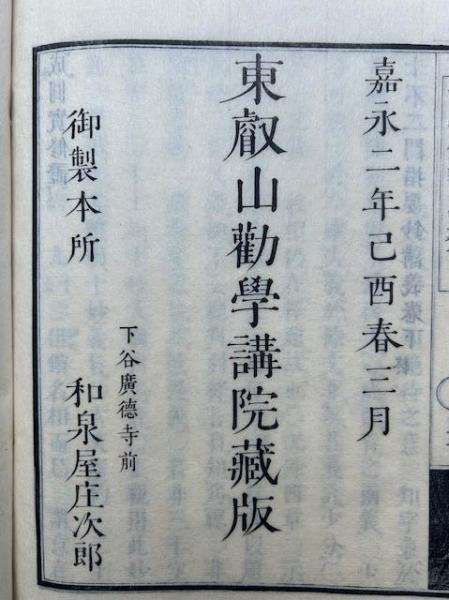 嘉永二年己酉春三月
東叡山勸學講院藏版
下谷廣德寺前
御製本所　和泉屋庄次郎